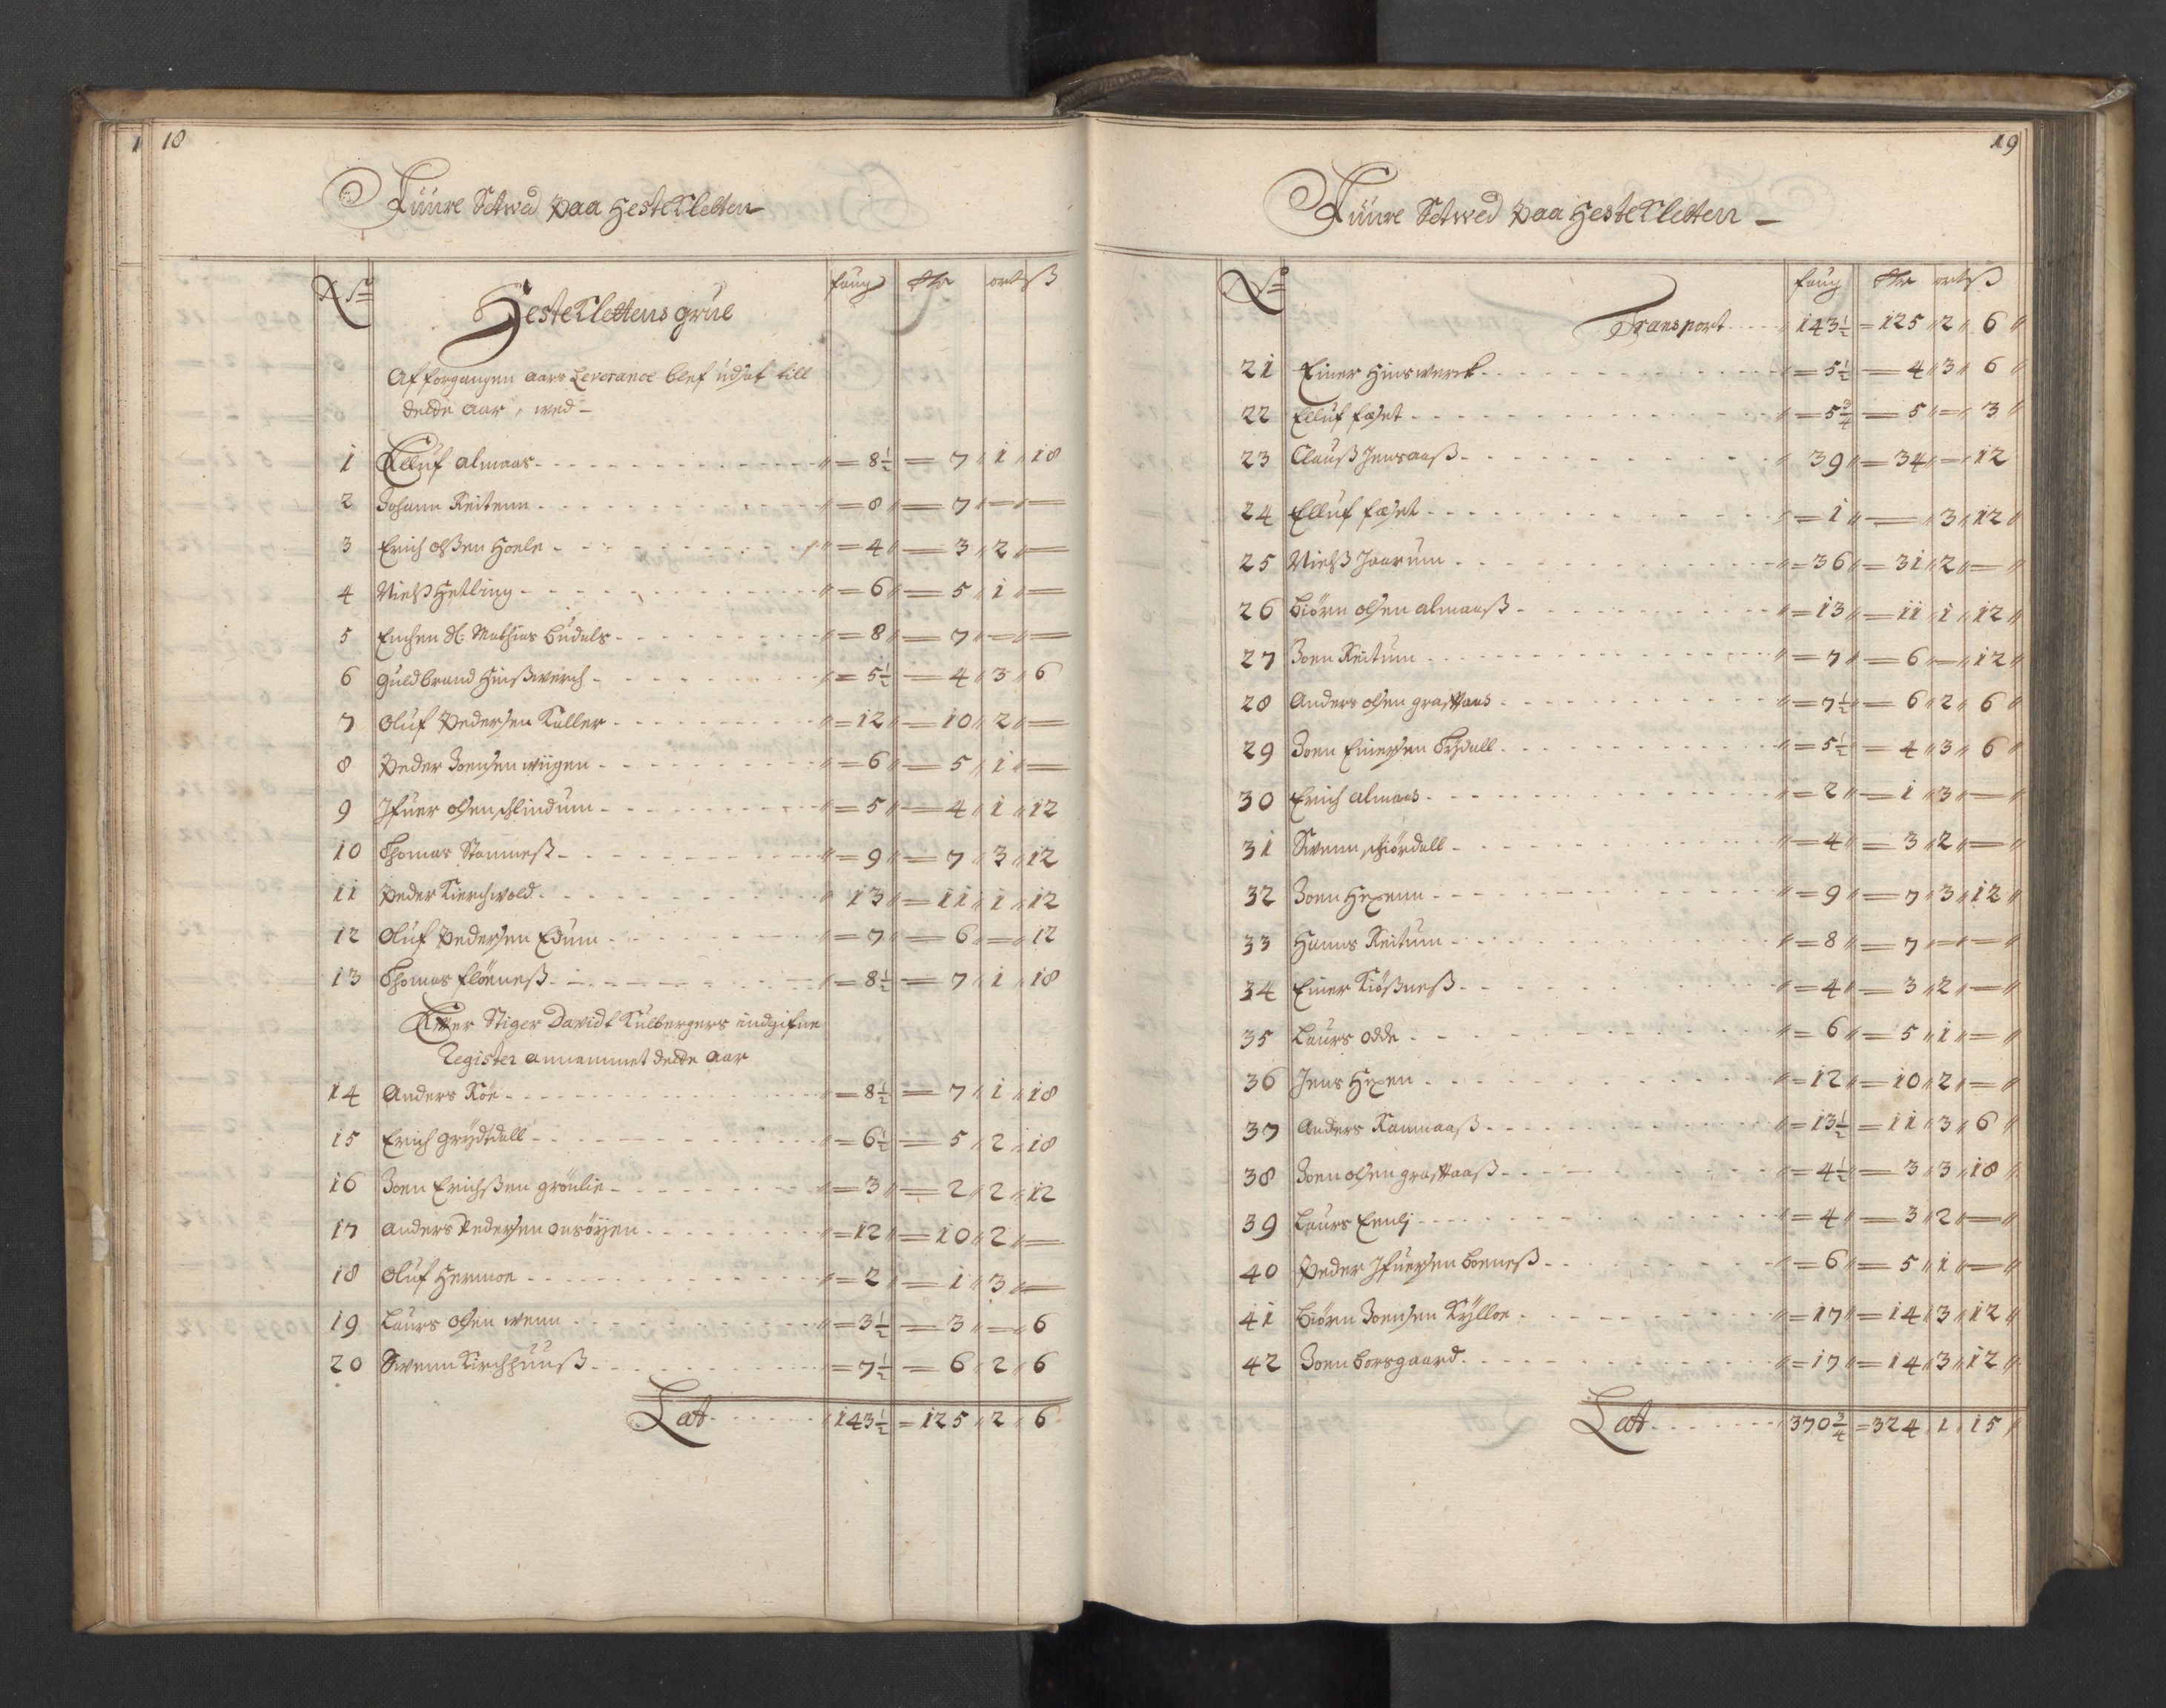 1 18
Füüre Setwed paa Hestekletten
No faug Rdr ort ß
Hestekletens grue
Af forgangen aars Leverance blef udsat till
dette aar, wed -
1 Elluf almaas " = 8½ = 7 " 1 " 18
2 Johann Reitenn " = 8 " = 7 " = " =
3 Erich olßen Hoele " = 4 " = 3 " 2 " =
4 Nielß Hetling " = 6 " = 5 " 1 " =
5 Enchen Sl. Mathias Budals " = 8 = 7 " = " =
6 Guldbrand Hinßwerch " = 5½ = 4 " 3 " 6
7 Oluf Pedersen Kuller " = 12 " = 10 " 2 " =
8 Peder Joensen wiigen " = 6 " = 5 " 1 " =
9 Ifuer olsen schlindum " = 5 " = 4 " 1 " 12
10 Thomas Stamneß " = 9 " = 7 " 3 " 12
11 Peder Kierchwold " 13 " = 11 " 1 " 12
12 Oluf Pedersen Edum " = 7 " = 6 " = " 12
13 Thomas flöneß " = 8½ = 7 " 1 " 18
Efter Stiger Davidt Kulbergers indgifne
Register annammet dette aar
14 Anders Röe " = 8½ = 7 " 1 " 18
15 Erich grydtdall " = 6½ = 5 " 2 " 18
16 Joen Erichßen grönlie " = 3 " = 2 " 2 " 12
17 anders Pedersen onsöyen " = 12 " = 10 " 2 " =
18 Oluf Hermoe " = 2 " = 1 " 3 " =
19 Laurs olsen wenn " = 3½ = 3 " = " 6
20 Swenn Kirchhuuß = 7½ = 6 " 2 " 6
Lat " 143½ = 125 " 2 " 6
19
Füüre Setwed paa Hestekletten -
No faug Rdr ort ß
Transport " 143½ = 125 " 2 " 6 "
21 Einer Hinswerck " = 5½ = 4 " 3 " 6 "
22 Elluf fæset " = 5¾ = 5 " = " 3 "
23 Clauß Jensaaß " 39 " = 34 " = " 12
24 Elluf fæset " = 1 " = " 3 " 12 "
25 Nielß Jaarum " = 36 " = 31 " 2 " = "
26 Biörn olsen almaaß " = 13 " = 11 " 1 " 12 "
27 Joen Reitum " = 7 " = 6 " = " 12 "
28 Anders olsen graftaas " = 7½ = 6 " 2 " 6 "
29 Joen Einersen Tydall " = 5½ = 4 " 3 " 6 "
30 Erich almaas " = 2 " = 1 " 3 " = "
31 Swenn schiördall " = 4 " = 3 " 2 " = "
32 Joen Hexenn " = 9 " = 7 " 3 " 12 "
33 Hanns Reitum " = 8 " = 7 " = " = "
34 Einer Kiößneß " = 4 " = 3 " 2 " = "
35 Laurs odde " = 6 " = 5 " 1 " = "
36 Jens Hexen " = 12 " = 10 " 2 " = "
37 Anders Kammaaß " = 13½ = 11 " 3 " 6 "
38 Joen olsen graftaaß " = 4½ = 3 " 3 " 18 "
39 Laurs Eenlj " = 4 " = 3 " 2 " = "
40 Peder Ifuersen Boeneß " = 6 " = 5 " 1 " = "
41 Biörn Joensen Kylloe " = 17 " = 14 " 3 " 12 "
42 Joen Borsgaard " = 17 " = 14 " 3 " 12 "
Lat " 370¾ = 324 " 1 " 15 "